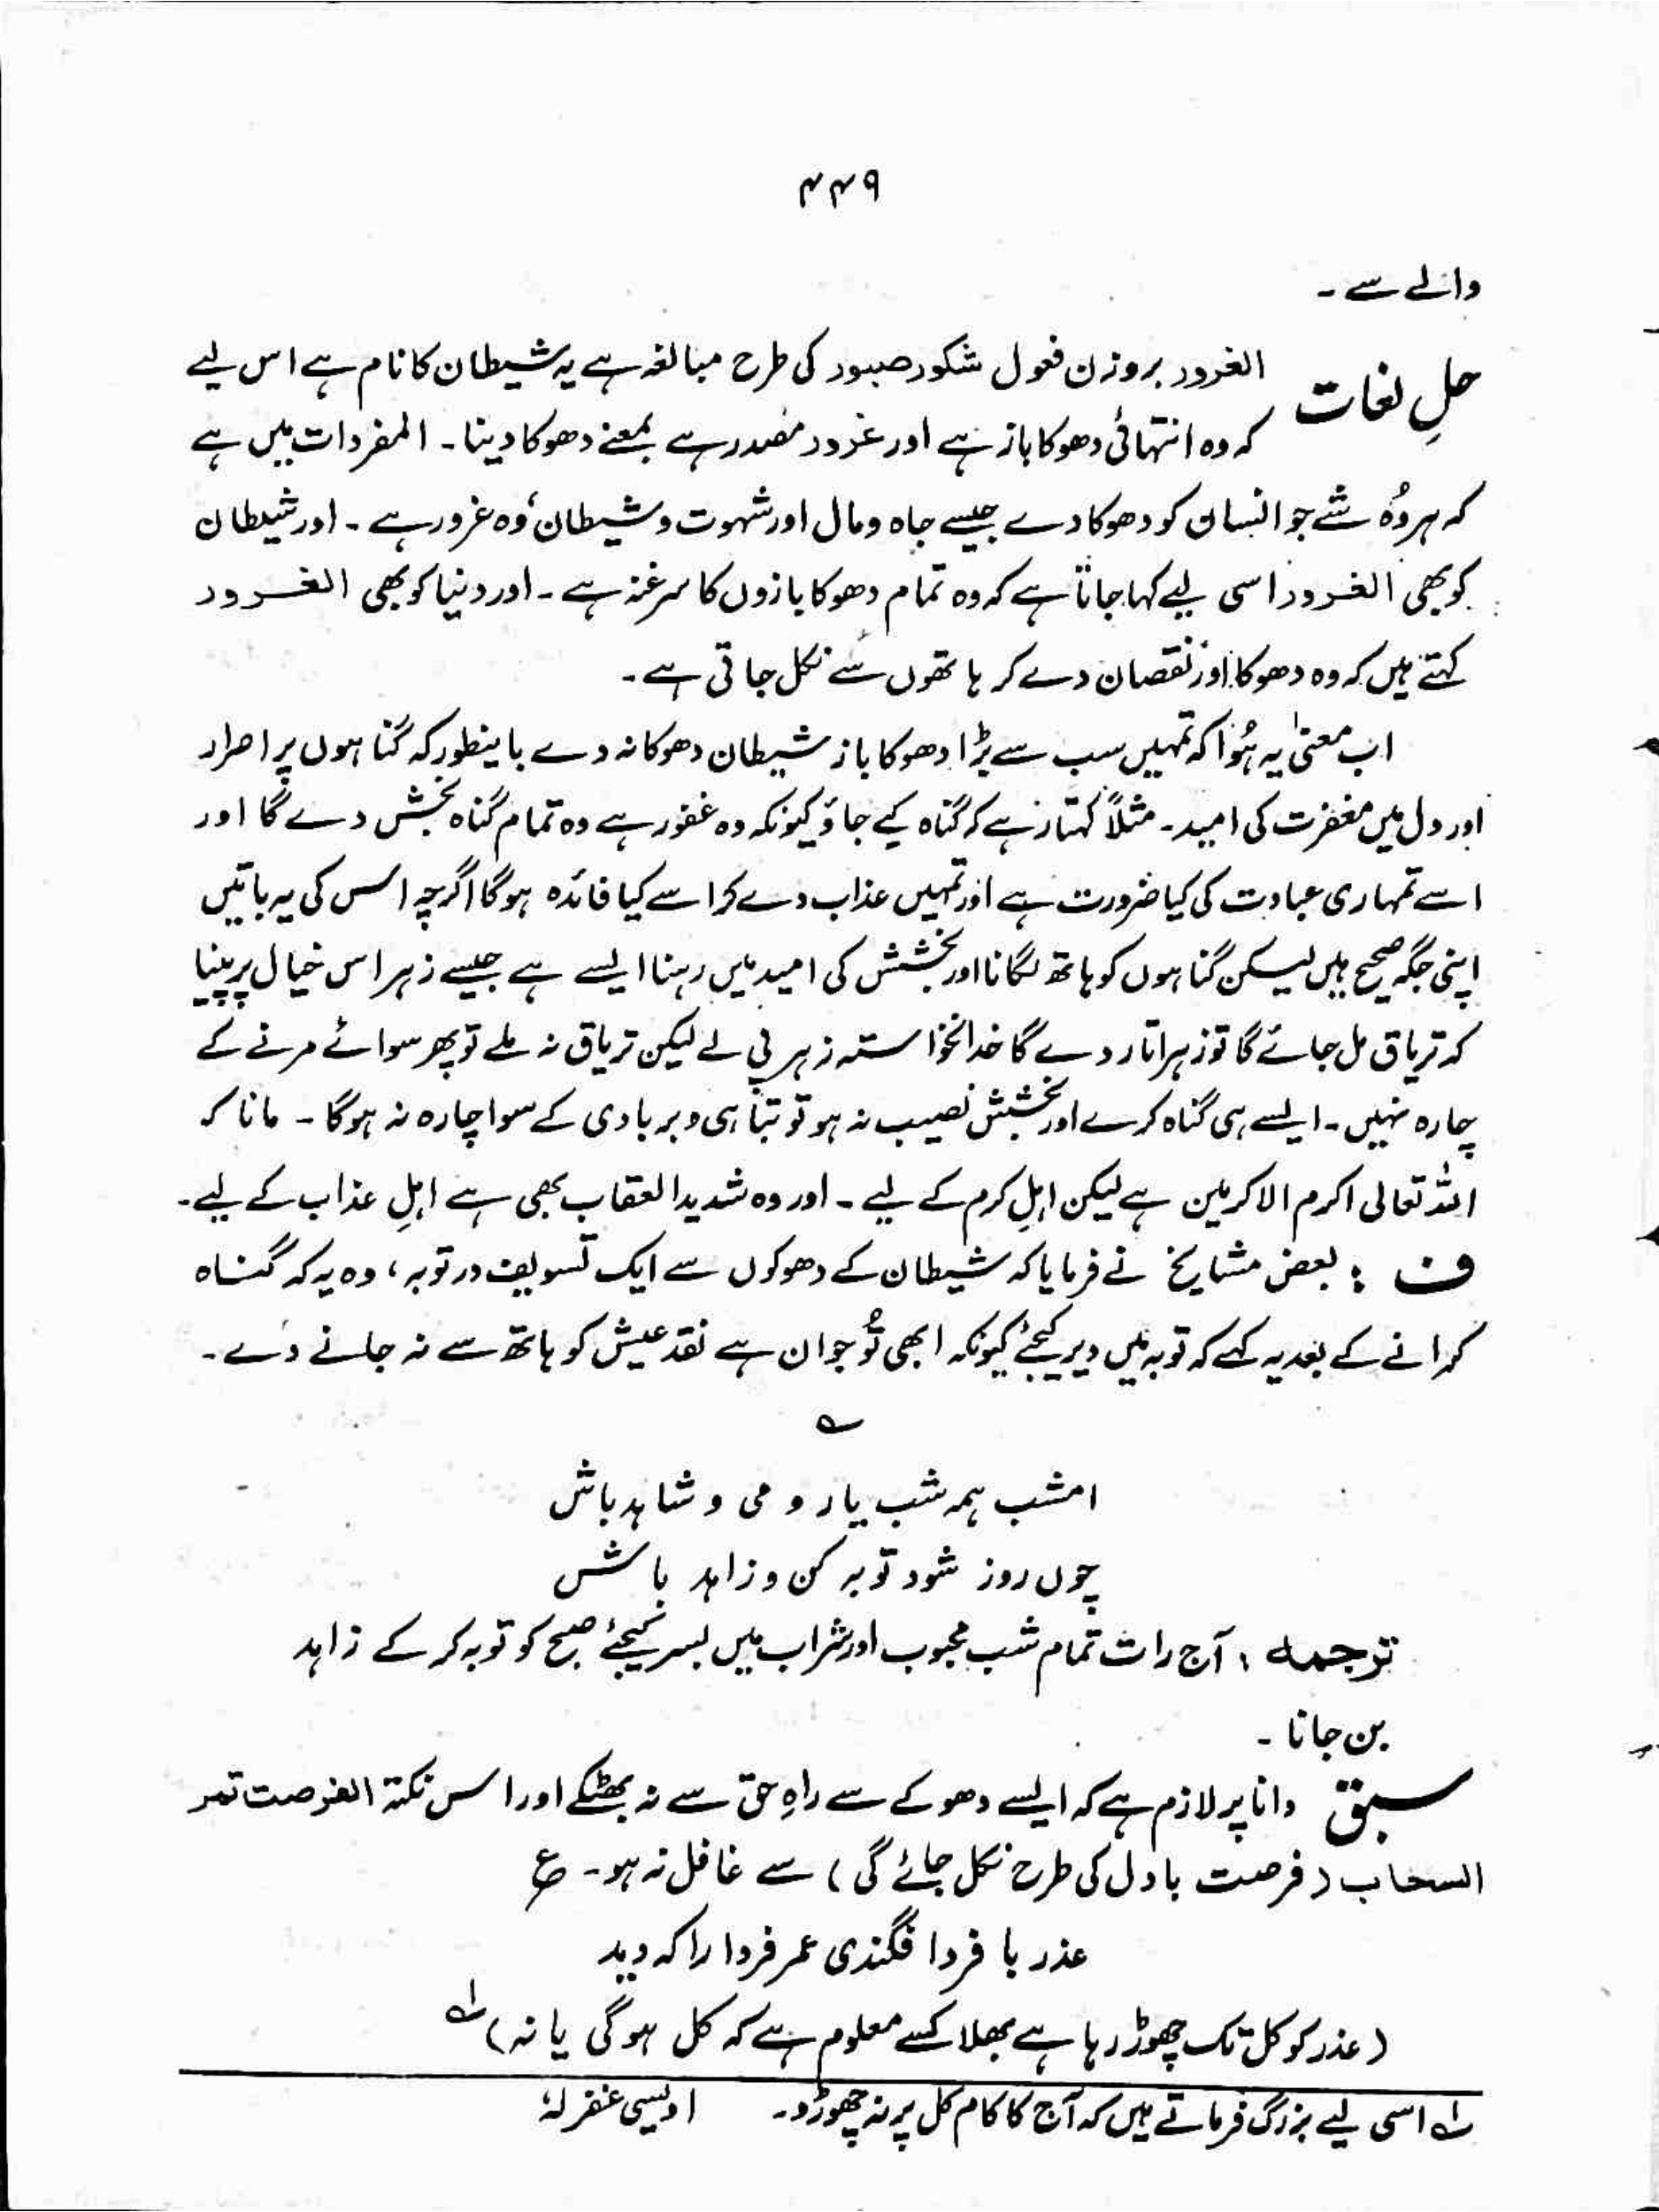 ۴۴۹
والے سے ۔
حلِ لغات الغرور بروزن فعول شکور صبور کی طرح مبالغہ ہے یہ شیطان کا نام ہے اس لیے
کہ وہ انتہائی دھوکا باز ہے اور غرور مصدر ہے بمعنے دھوکا دینا ۔ المفردات میں ہے
کہ ہر وُہ شے جو انسان کو دھوکا دے جیسے جاہ و مال اور شہوت و شیطان، وُہ غرور ہے ۔ اور شیطان
کو بھی الغرور اسی لیے کہا جاتا ہے کہ وہ تمام دھوکا بازوں کا سرغنہ ہے ۔ اور دنیا کو بھی الغرور
کہتے ہیں کہ وہ دھوکا اور نقصان دے کر ہاتھوں سے نکل جاتی ہے ۔
اب معنیٰ یہ ہُوا کہ تمہیں سب سے بڑا دھوکا باز شیطان دھوکا نہ دے بایںطور کہ گناہوں پر اصرار
اور دل میں مغفرت کی امید ۔ مثلاً کہتا ہے کہ گناہ کیے جاؤ کیونکہ وہ غفور ہے وہ تمام گناہ بخش دے گا اور
اسے تمہاری عبادت کی کیا ضرورت ہے اور تمہیں عذاب دے کر اسے کیا فائدہ ہوگا اگرچہ اس کی یہ باتیں
اپنی جگہ صحیح ہیں لیکن گناہوں کو ہاتھ لگانا اور بخشش کی امید میں رہنا ایسے ہے جیسے زہر اس خیال پر پینا
کہ تریاق مل جائے گا تو زہر اتار دے گا خدانخواستہ زہر پی لے لیکن تریاق نہ ملے تو پھر سوائے مرنے کے
چارہ نہیں ۔ ایسے ہی گناہ کرے اور بخشش نصیب نہ ہو تو تباہی و بربادی کے سوا چارہ نہ ہوگا ۔ مانا کہ
اللہ تعالی اکرم الاکرمین ہے لیکن اہلِ کرم کے لیے ۔ اور وہ شدید العقاب بھی ہے اہلِ عذاب کے لیے ۔
ف : بعض مشایخ نے فرمایا کہ شیطان کے دھوکوں سے ایک تسویف در توبہ، وہ یہ کہ گناہ
کرانے کے بعد یہ کہے کہ توبہ میں دیر کیجئے کیونکہ ابھی تُو جوان ہے نقد عیش کو ہاتھ سے نہ جانے دے ۔
؎
امشب ہمہ شب یار و می و شاہد باش
چوں روز شود توبہ کن و زاہد باش
ترجمہ : آج رات تمام شب محبوب اور شراب میں بسر کیجئے صبح کو توبہ کر کے زاہد
بن جانا ۔
سبق دانا پر لازم ہے کہ ایسے دھوکے سے راہِ حق سے نہ بھٹکے اور اس نکتہ الفرصت تمر
السحاب (فرصت بادل کی طرح نکل جائے گی) سے غافل نہ ہو ۔ ع
عذر با فردا فگندی عمر فردا را کہ دید
(عذر کو کل تک چھوڑ رہا ہے بھلا کسے معلوم ہے کہ کل ہوگی یا نہ) لہ
لہ اسی لیے بزرگ فرماتے ہیں کہ آج کا کام کل پر نہ چھوڑو ۔ اویسی غفرلہٗ